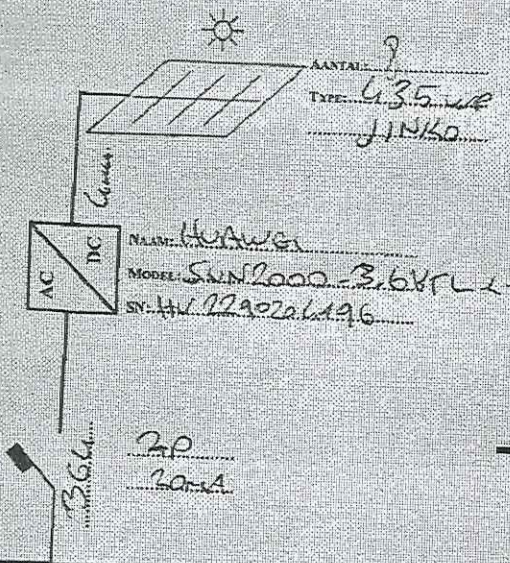 AANTAL: 9
TYPE: 435 WP
JINKO
4mm
AC
DC
NAAM: HUAWEI
MODEL: SUN2000-3,6KTL-L
SN: HV2290206196
2P